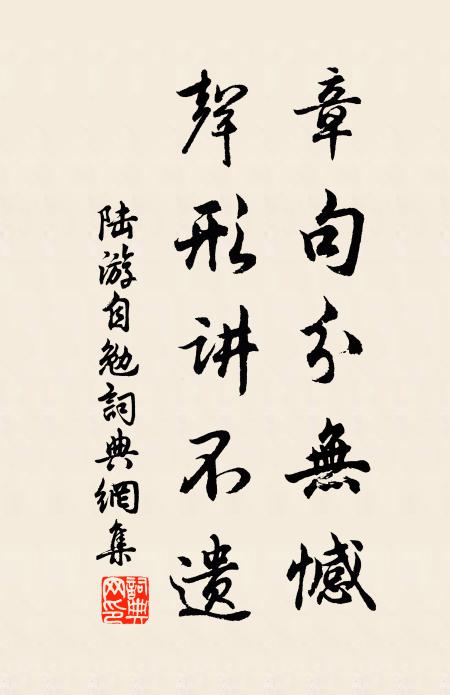 章句分無憾
聲形讲不遗
陆游自勉詞典網集
詞典
网印